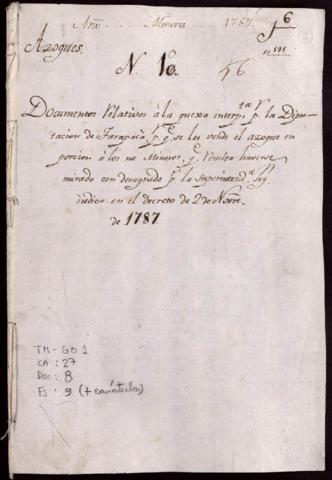 Año Mineria 1787. 6
Azogues.
N. 10. 56
Documentos Relativos á la quexa interp.ta p.r la Dipu-
tacion de Tarapacá, p.r q.e se les vende el azogue en
porcion á los no Mineros, q.e resulta haverse
mirado con desagrado p.r la Superintend.a seg.n
indica en el decreto de 2 de Nbre.
de 1787
TM-GO 1
CA : 27
DOC : 8
FS : 9 (+ carátula)